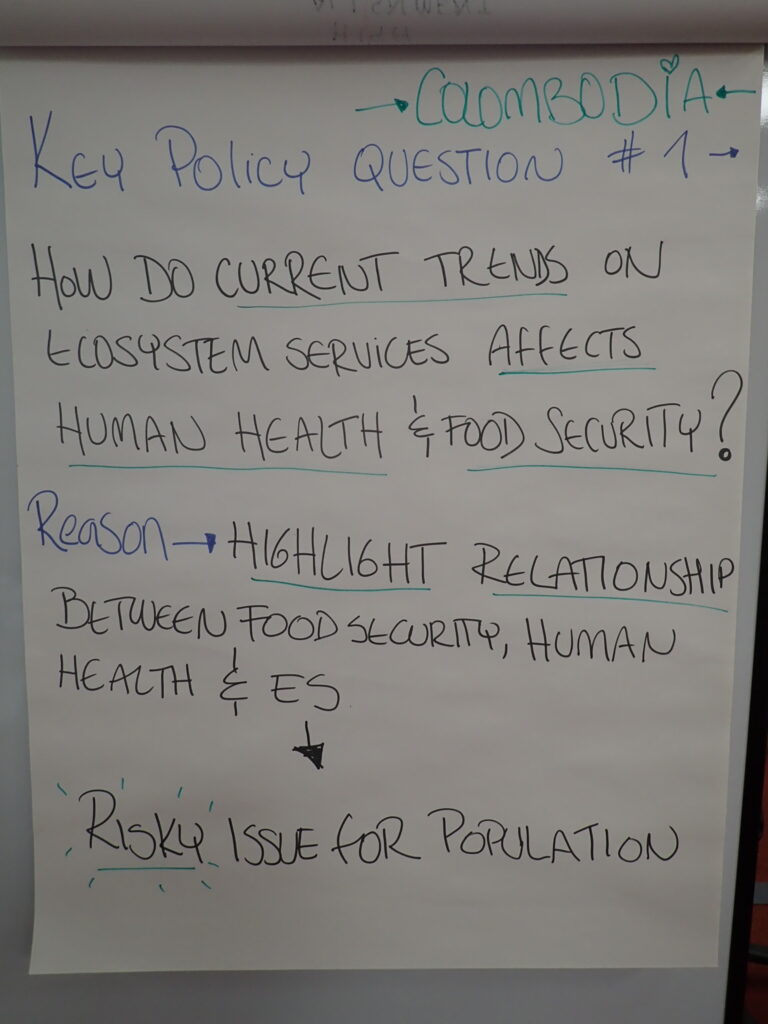 → COLOMBODIA ←
KEY POLICY QUESTION # 1 →
HOW DO CURRENT TRENDS ON
ECOSYSTEM SERVICES AFFECTS
HUMAN HEALTH & FOOD SECURITY?
Reason → HIGHLIGHT RELATIONSHIP
BETWEEN FOOD SECURITY, HUMAN
HEALTH & ES
↓
RISKY ISSUE FOR POPULATION